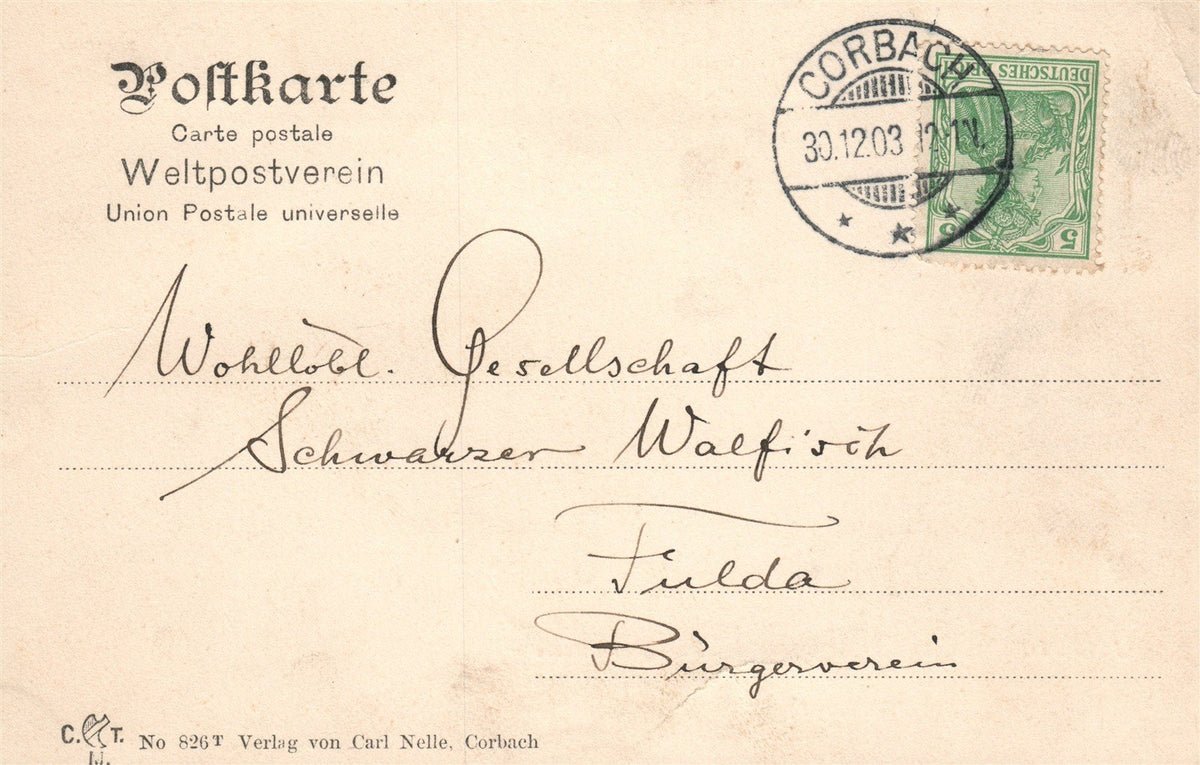 Postkarte
Carte postale
Weltpostverein
Union Postale universelle
CORBACH
30.12.03 12-1N.
DEUTSCHES REICH
5 5
Wohllöbl. Gesellschaft
Schwarzer Walfisch
Fulda
Bürgerverein
C. T.
N.
No 826T Verlag von Carl Nelle, Corbach